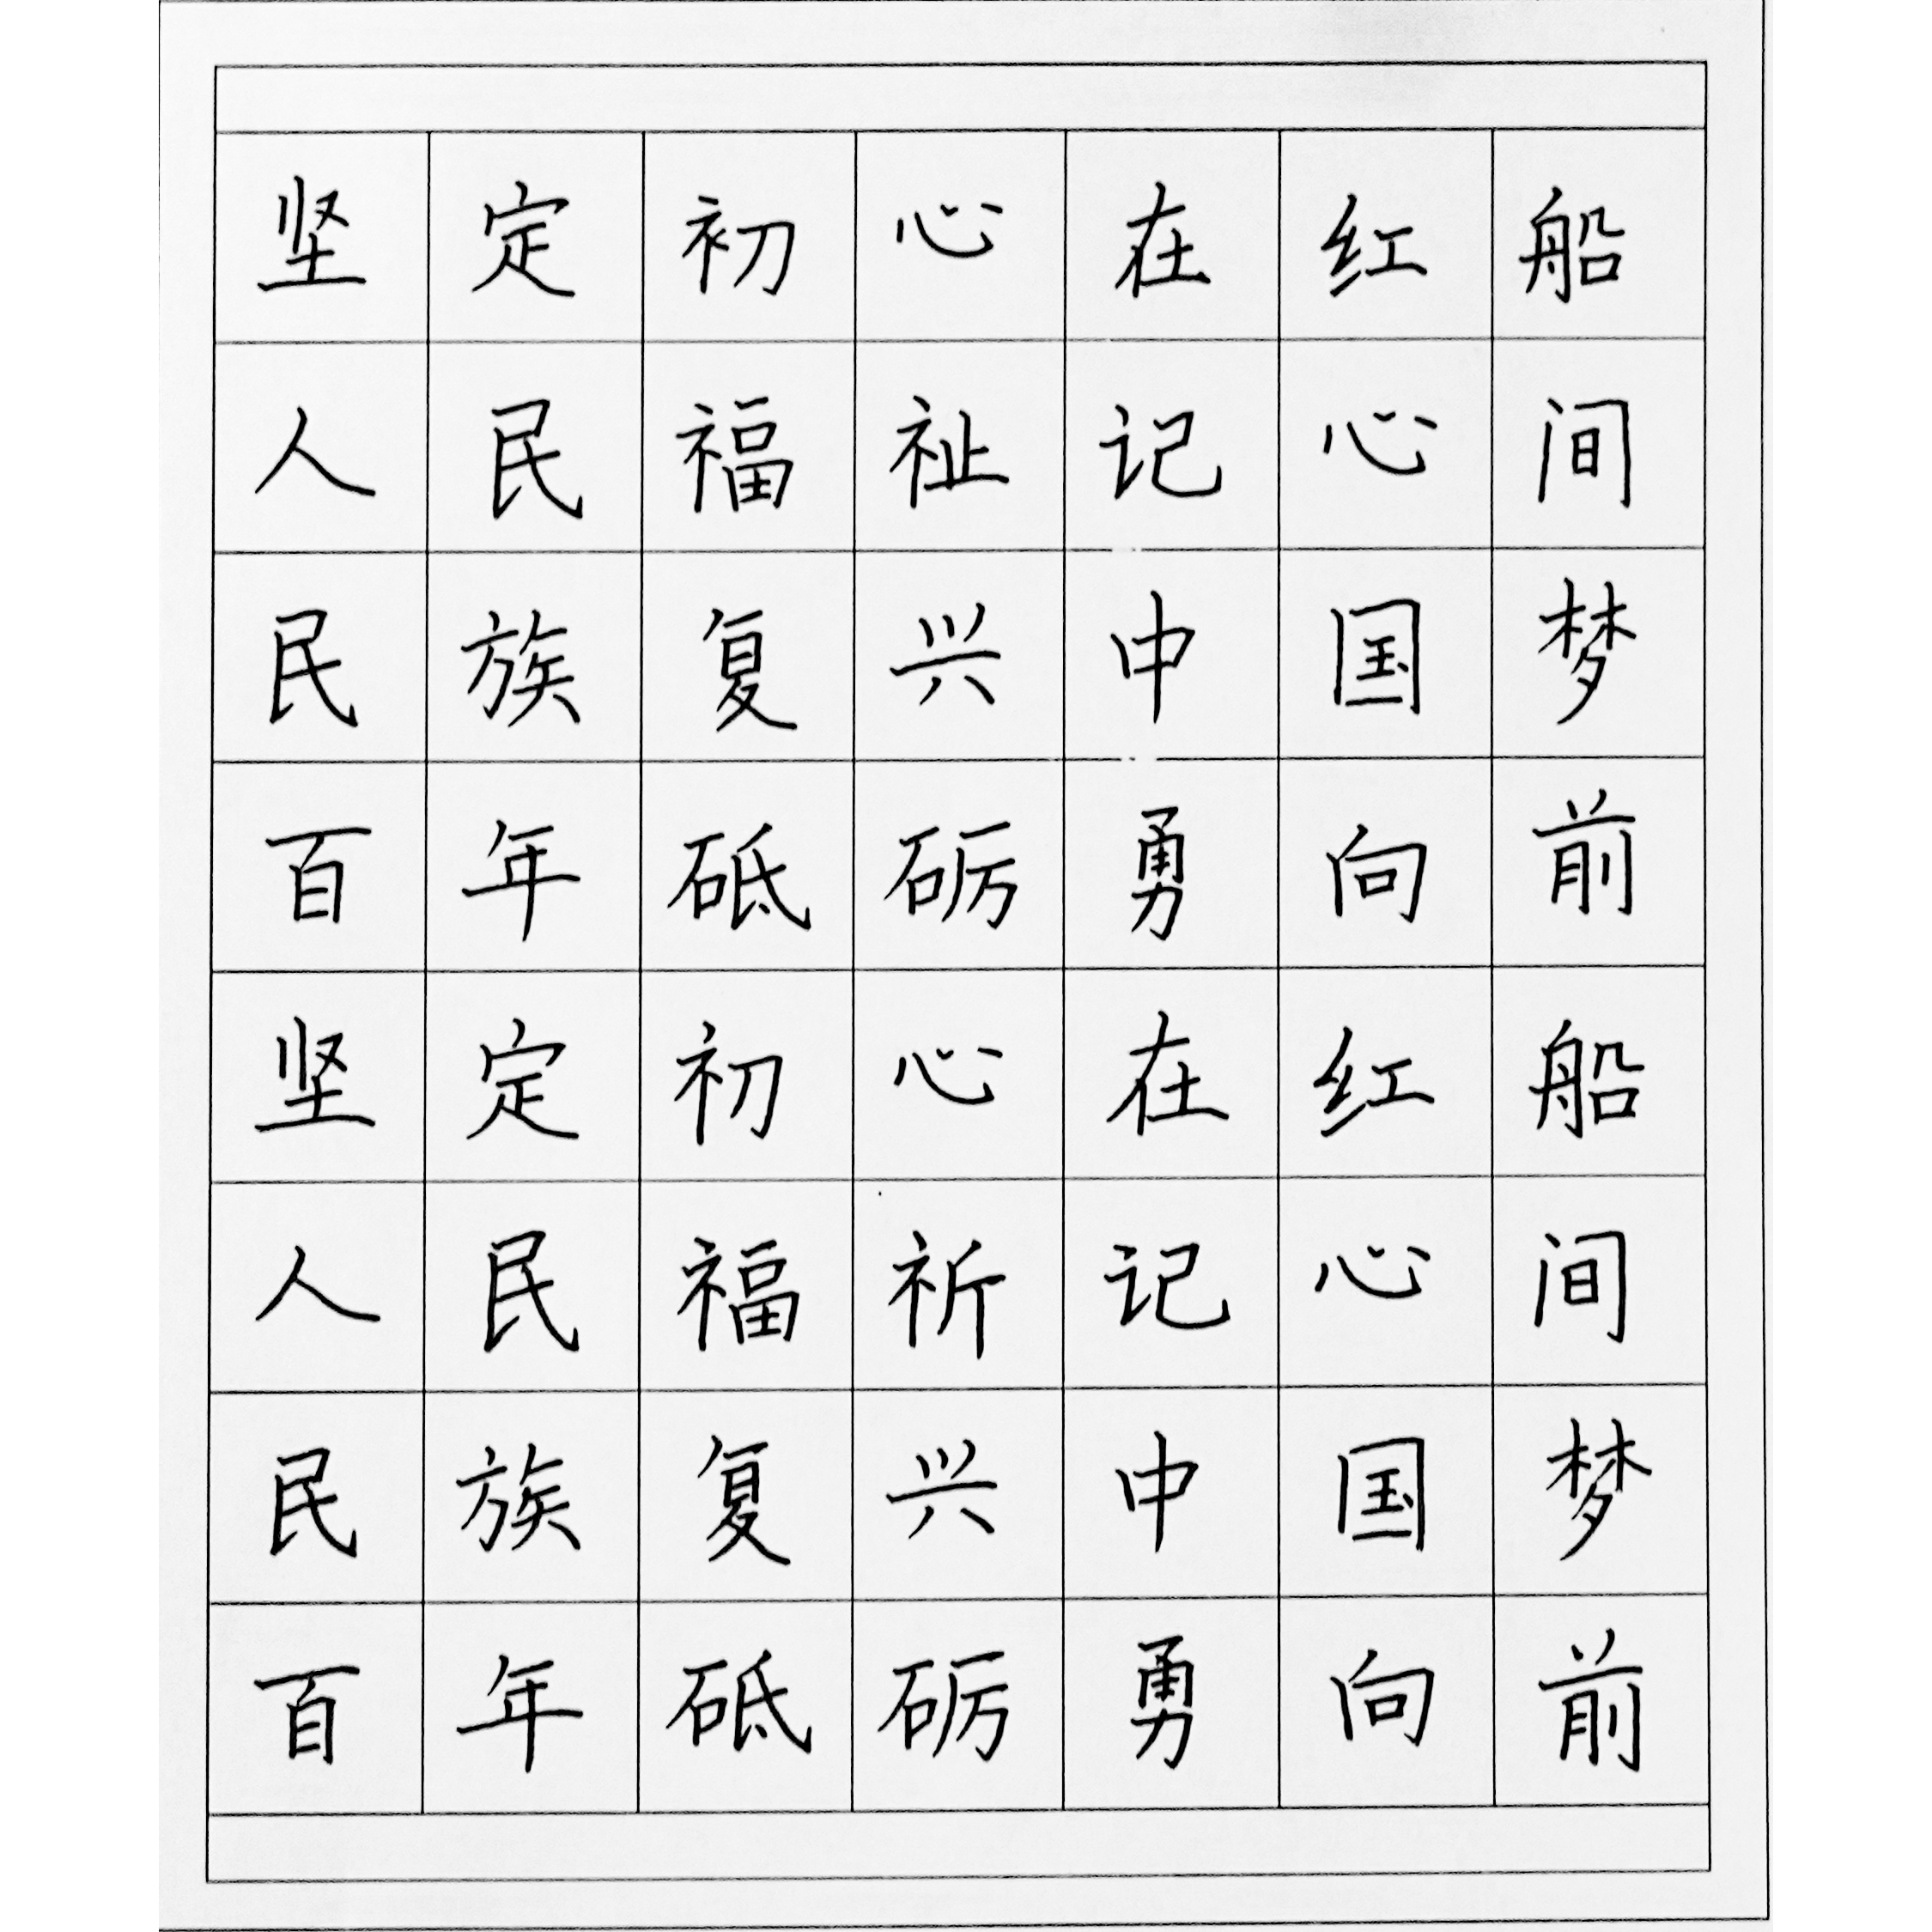 坚定初心在红船
人民福祉记心间
民族复兴中国梦
百年砥砺勇向前
坚定初心在红船
人民福祈记心间
民族复兴中国梦
百年砥砺勇向前